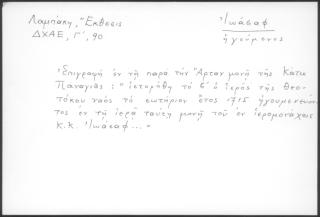 Λαμπάκη, "Ἔκθεσις
ΔΧΑΕ, Γ', 90
Ἰωάσαφ
ἡγούμενος
Ἐπιγραφὴ ἐν τῇ παρὰ τὴν Ἄρταν μονῇ τῆς Κάτω
Παναγιᾶς : "ἱστορήθη τὸ β' ὁ ἱερὸς τῆς Θεο-
τόκου ναὸς τὸ σωτήριον ἔτος 1715 ἡγουμενεύον-
τος ἐν τῇ ἱερᾷ ταύτῃ μονῇ τοῦ ἐν ἱερομονάχοις
κ.κ. Ἰωάσαφ... "